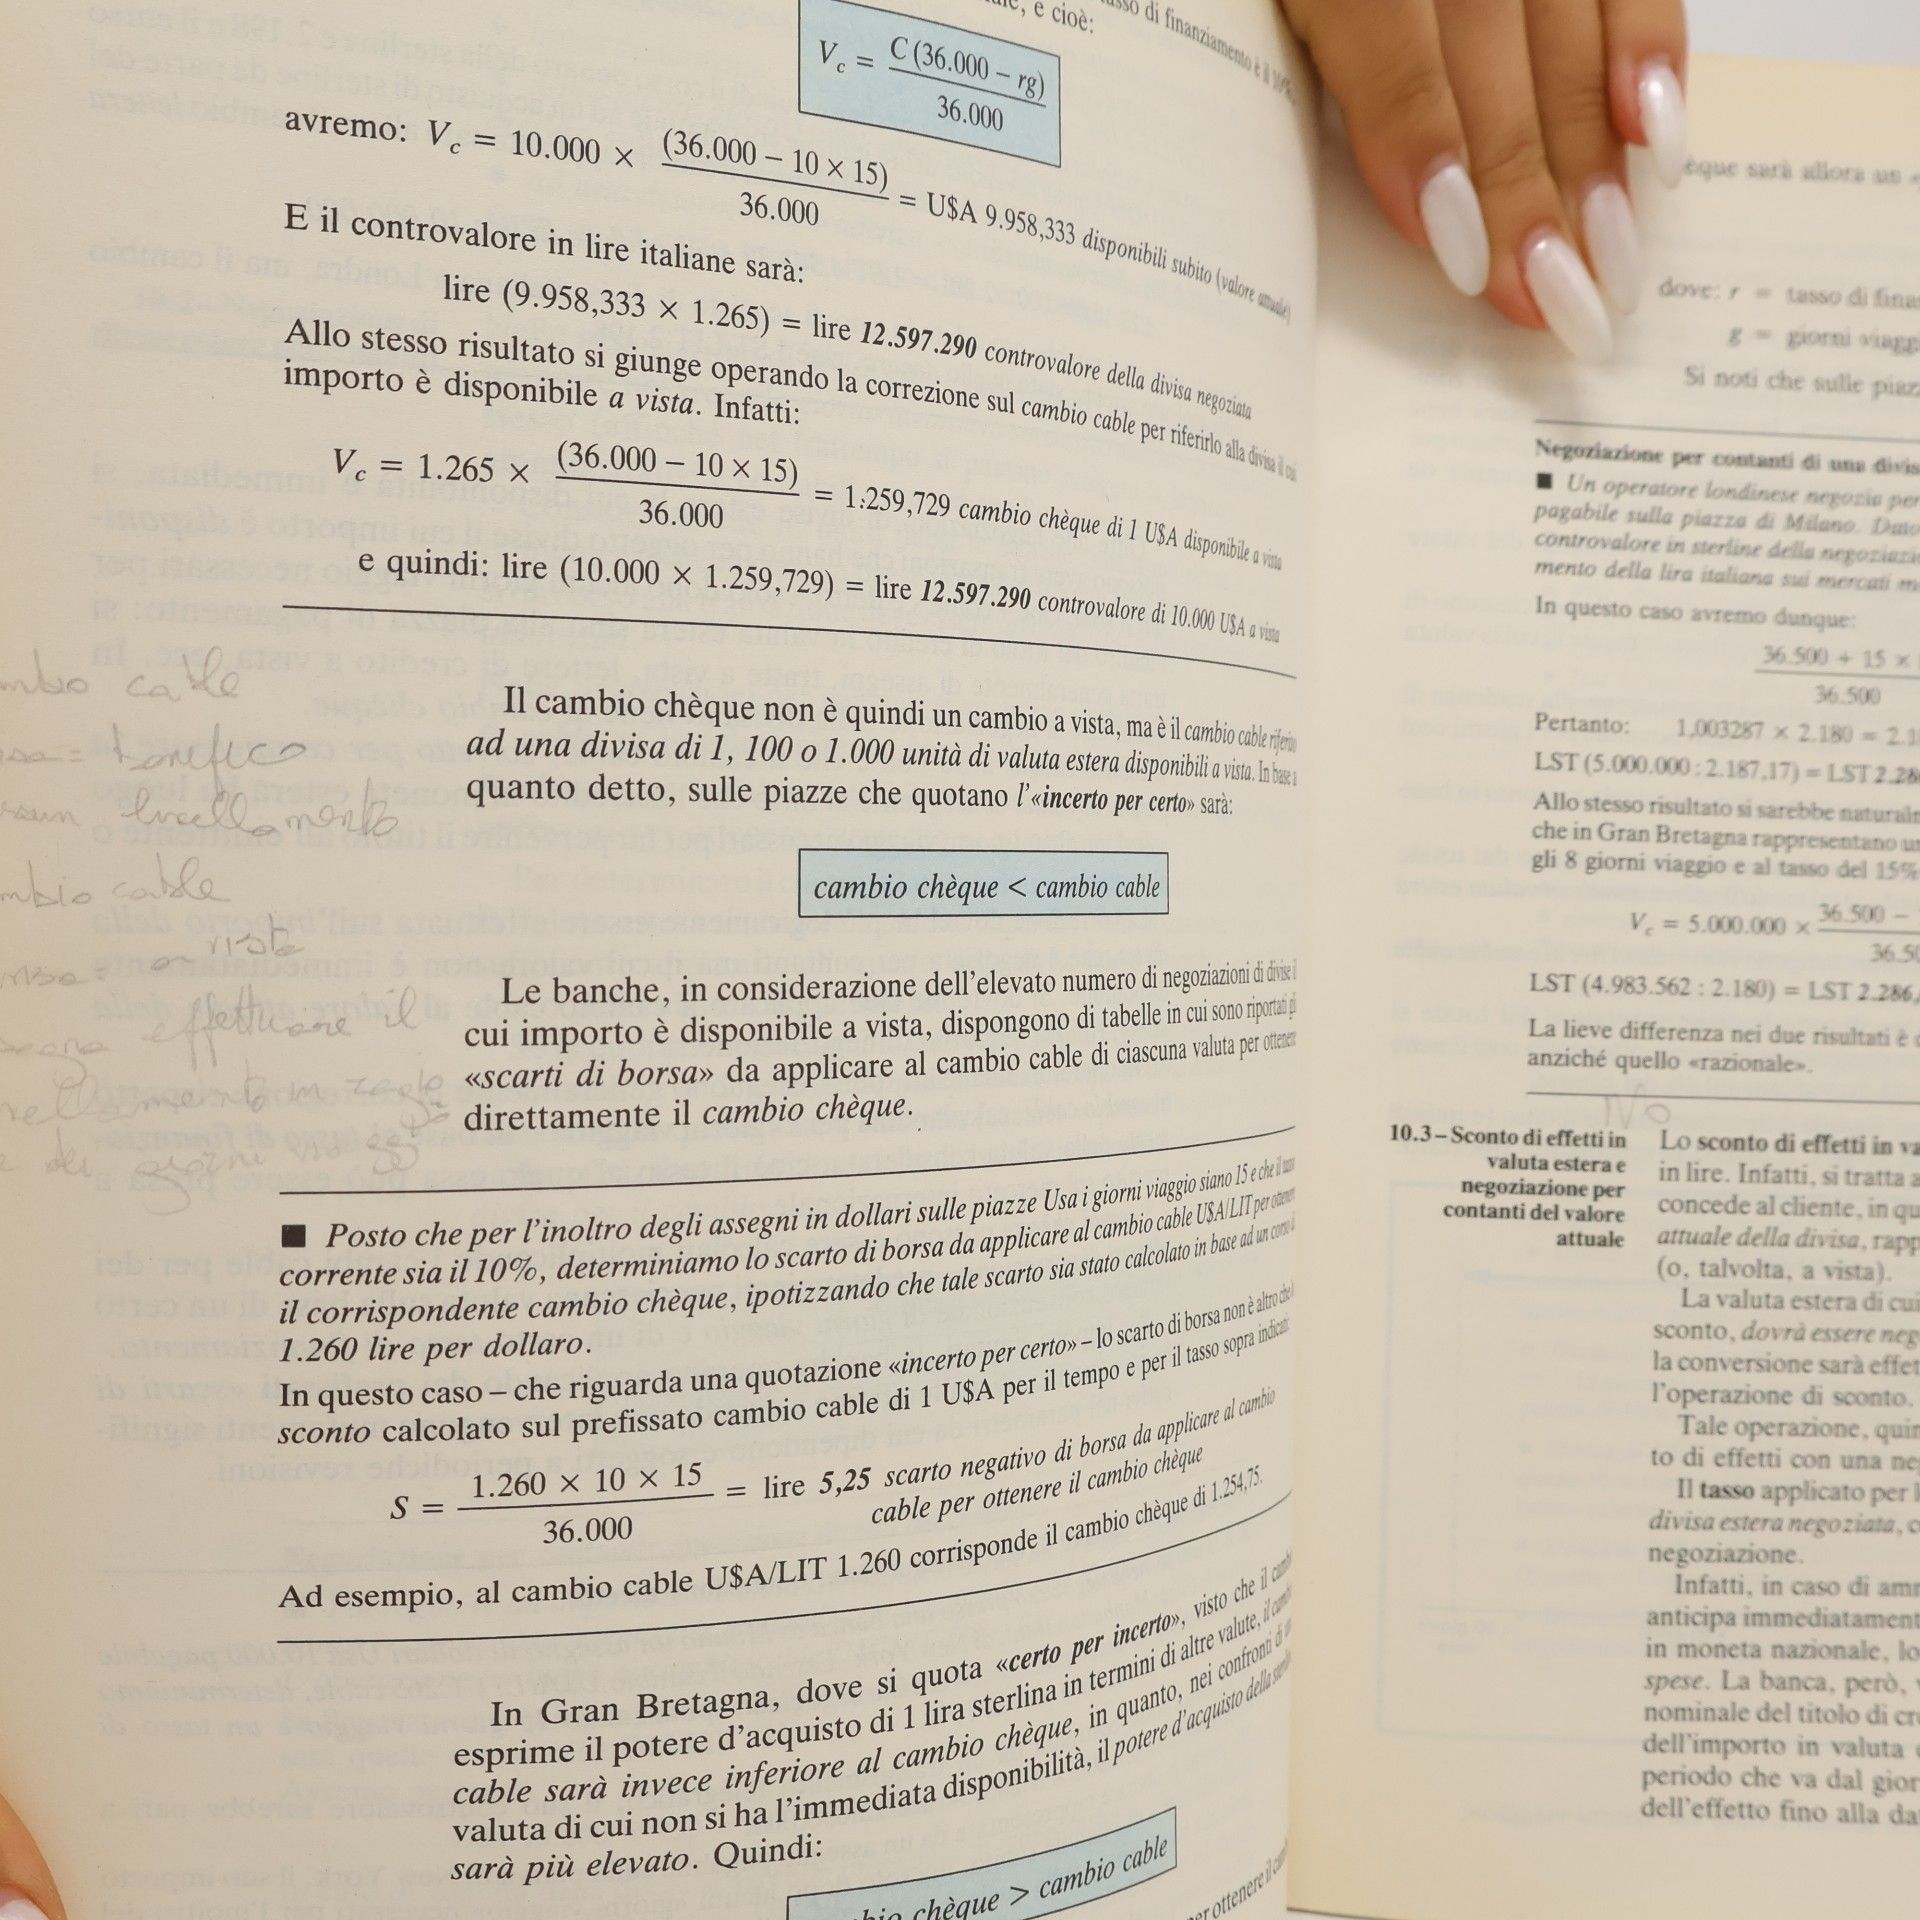 e cioè:
tasso di finanziamento è il
V_c = C (36.000 – rg) / 36.000
avremo: V_c = 10.000 × (36.000 – 10 × 15) / 36.000 = U$A 9.958,333 disponibili subito (valore attuale)
E il controvalore in lire italiane sarà:
lire (9.958,333 × 1.265) = lire 12.597.290 controvalore della divisa negoziata
Allo stesso risultato si giunge operando la correzione sul cambio cable per riferirlo alla divisa il cui
importo è disponibile a vista. Infatti:
V_c = 1.265 × (36.000 – 10 × 15) / 36.000 = 1.259,729 cambio chèque di 1 U$A disponibile a vista
e quindi: lire (10.000 × 1.259,729) = lire 12.597.290 controvalore di 10.000 U$A a vista
Il cambio chèque non è quindi un cambio a vista, ma è il cambio cable riferito
ad una divisa di 1, 100 o 1.000 unità di valuta estera disponibili a vista. In base a
quanto detto, sulle piazze che quotano l'«incerto per certo» sarà:
cambio chèque < cambio cable
Le banche, in considerazione dell'elevato numero di negoziazioni di divise il
cui importo è disponibile a vista, dispongono di tabelle in cui sono riportati gli
«scarti di borsa» da applicare al cambio cable di ciascuna valuta per ottenere
direttamente il cambio chèque.
■ Posto che per l'inoltro degli assegni in dollari sulle piazze Usa i giorni viaggio siano 15 e che il tasso
corrente sia il 10%, determiniamo lo scarto di borsa da applicare al cambio cable U$A/LIT per ottenere
il corrispondente cambio chèque, ipotizzando che tale scarto sia stato calcolato in base ad un corso di
1.260 lire per dollaro.
In questo caso – che riguarda una quotazione «incerto per certo» – lo scarto di borsa non è altro che lo
sconto calcolato sul prefissato cambio cable di 1 U$A per il tempo e per il tasso sopra indicati:
S = 1.260 × 10 × 15 / 36.000 = lire 5,25 scarto negativo di borsa da applicare al cambio
cable per ottenere il cambio chèque
Ad esempio, al cambio cable U$A/LIT 1.260 corrisponde il cambio chèque di 1.254,75.
In Gran Bretagna, dove si quota «certo per incerto», visto che il cambio
esprime il potere d'acquisto di 1 lira sterlina in termini di altre valute, il cambio
cable sarà invece inferiore al cambio chèque, in quanto, nei confronti di
valuta di cui non si ha l'immediata disponibilità, il potere d'acquisto della
sarà più elevato. Quindi:
chèque > cambio cable
ottenere il
cable
bonifico
livellamento
cable
a vista
effettuare il
giorni
sarà allora un
dove: r = tasso di
g = giorni
Si noti che sulle
Negoziazione per contanti di una
■ Un operatore londinese negozia per
pagabile sulla piazza di Milano. Dato
controvalore in sterline della
mento della lira italiana sui mercati
In questo caso avremo dunque:
36.500 + 15 × / 36.500
Pertanto: 1,003287 × 2.180 =
LST (5.000.000 : 2.187,17) = LST
Allo stesso risultato si sarebbe
che in Gran Bretagna rappresentano
gli 8 giorni viaggio e al tasso del 15%
V_c = 5.000.000 × 36.500 –
LST (4.983.562 : 2.180) = LST 2.286,
La lieve differenza nei due risultati è
anziché quello «razionale».
No
10.3 – Sconto di effetti in
valuta estera e
negoziazione per
contanti del valore
attuale
Lo sconto di effetti in
in lire. Infatti, si tratta
concede al cliente, in
attuale della divisa,
(o, talvolta, a vista).
La valuta estera di cui
sconto, dovrà essere
la conversione sarà
l'operazione di sconto.
Tale operazione,
to di effetti con una
Il tasso applicato per
divisa estera negoziata,
negoziazione.
Infatti, in caso di
anticipa
in moneta nazionale,
spese. La banca, però,
nominale del titolo di
dell'importo in valuta
periodo che va dal
dell'effetto fino alla